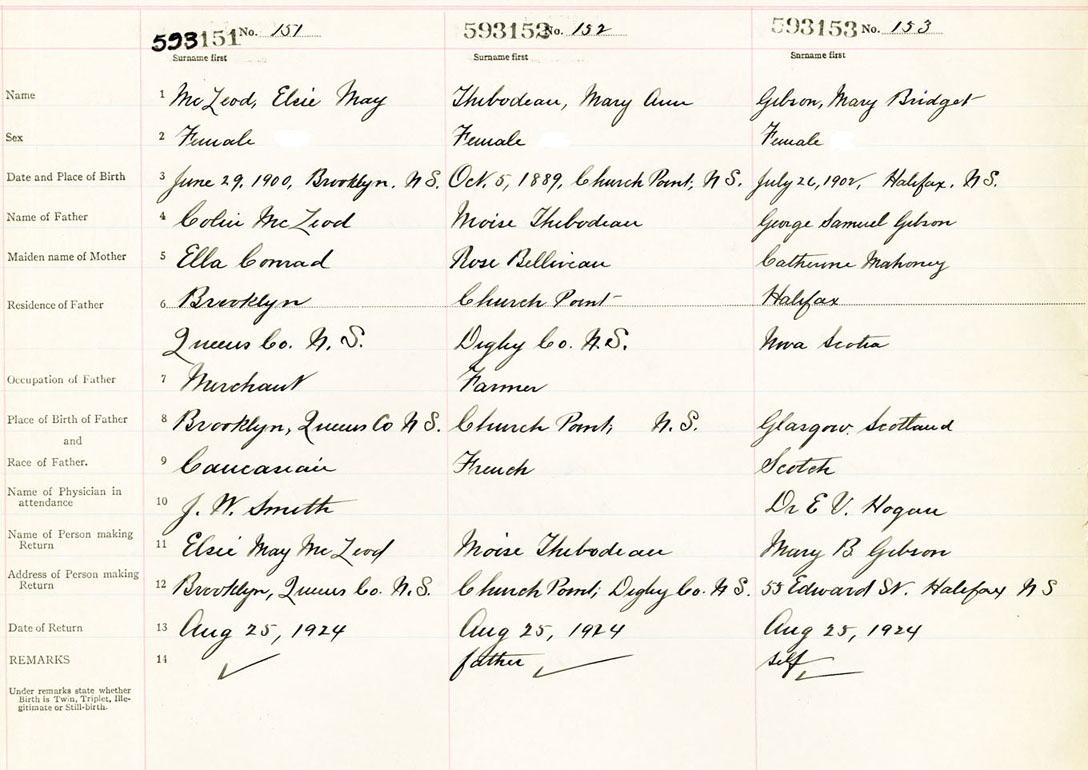 593151 No. 151 593152 No. 152 593153 No. 153
Surname first Surname first Surname first
Name 1 McLeod, Elsie May Thibodeau, Mary Ann Gibson, Mary Bridget
Sex 2 Female Female Female
Date and Place of Birth 3 June 29, 1900, Brooklyn, N.S. Oct. 5, 1889, Church Point, N.S. July 26, 1902, Halifax, N.S.
Name of Father 4 Colin McLeod Moise Thibodeau George Samuel Gibson
Maiden name of Mother 5 Ella Conrad Rose Belliveau Catherine Mahoney
Residence of Father 6 Brooklyn Church Point Halifax
Queens Co. N.S. Digby Co. N.S. Nova Scotia
Occupation of Father 7 Merchant Farmer
Place of Birth of Father 8 Brooklyn, Queens Co N S. Church Point, N.S. Glasgow. Scotland
and
Race of Father. 9 Caucasian French Scotch
Name of Physician in
attendance 10 J. W. Smith Dr E V. Hogan
Name of Person making
Return 11 Elsie May McLeod Moise Thibodeau Mary B Gibson
Address of Person making
Return 12 Brooklyn, Queens Co. N.S. Church Point, Digby Co. N.S. 55 Edward St. Halifax N S
Date of Return 13 Aug 25, 1924 Aug 25, 1924 Aug 25, 1924
REMARKS 14 father self
Under remarks state whether
Birth is Twin, Triplet, Ille-
gitimate or Still-birth.